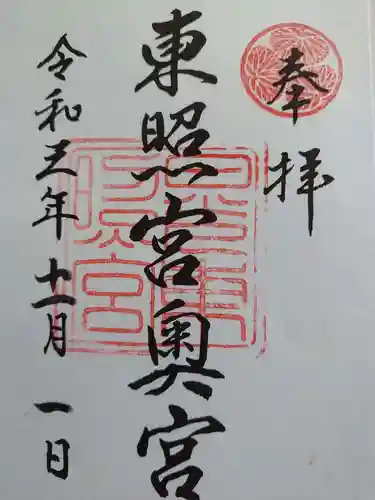 奉拝
東照宮奥宮
令和三年十一月一日